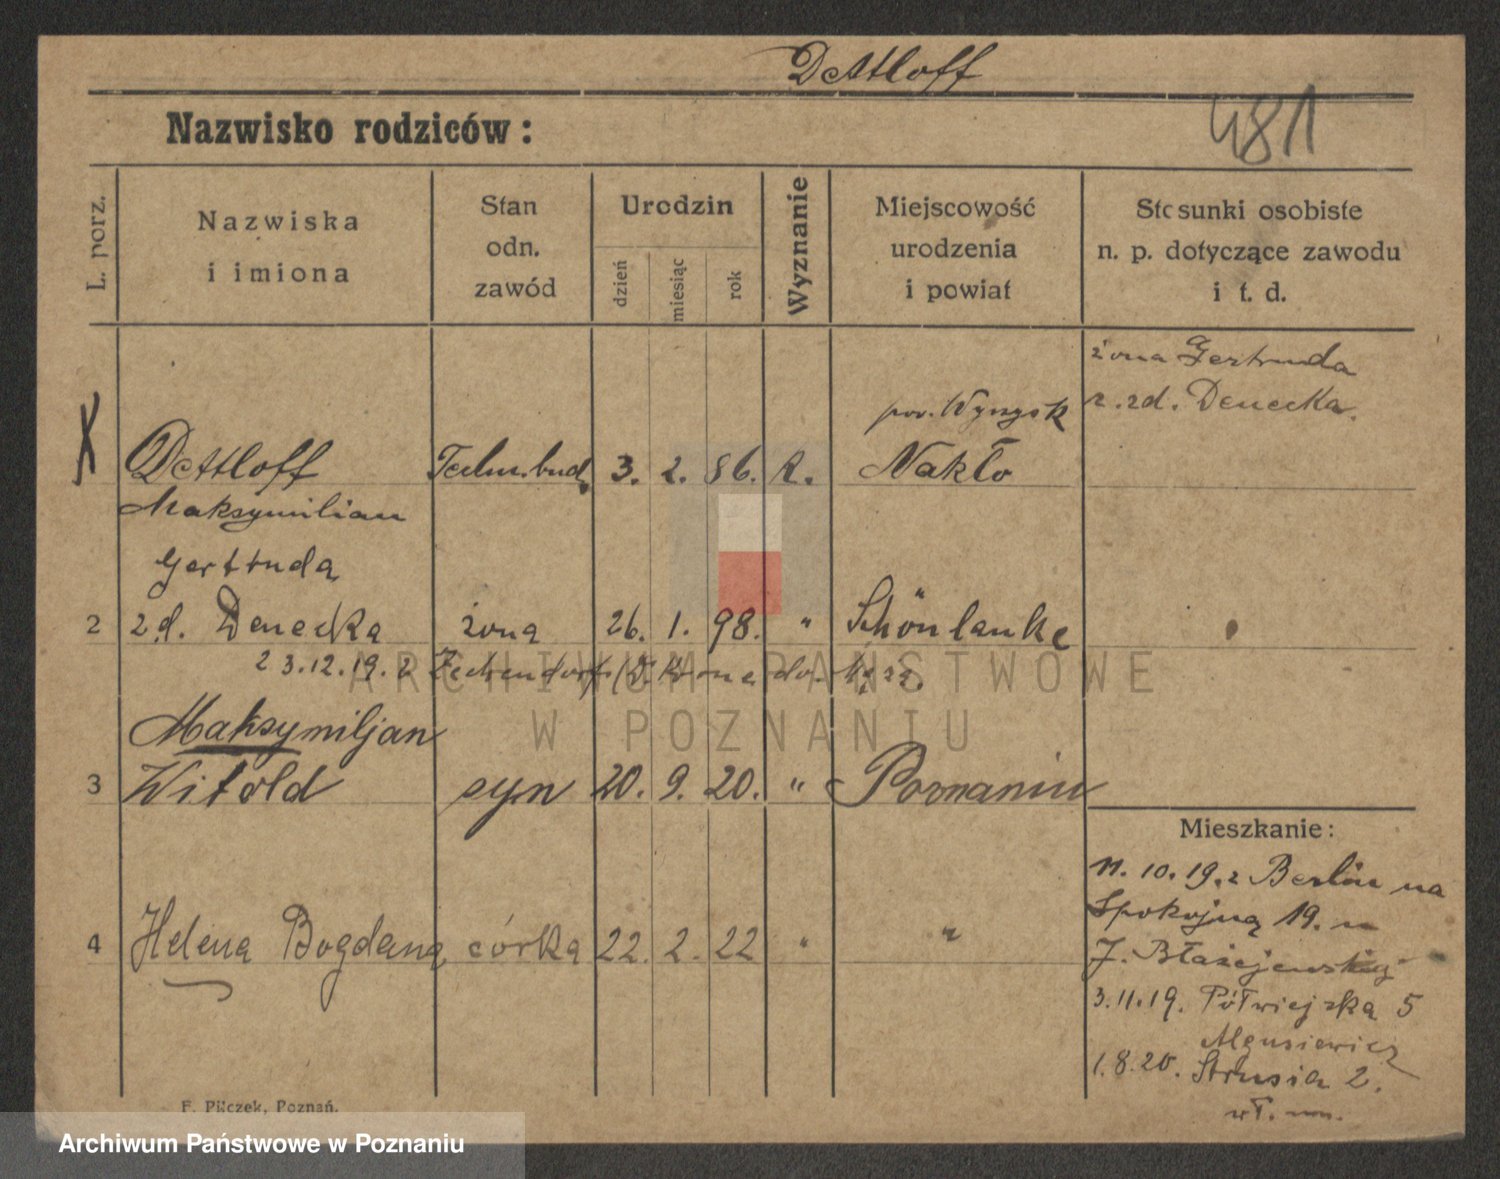 Dettloff
Nazwisko rodziców:
481
L. porz.
Nazwiska
i imiona
Stan
odn.
zawód
Urodzin
dzień
miesiąc
rok
Wyznanie
Miejscowość
urodzenia
i powiat
Stosunki osobiste
n. p. dotyczące zawodu
i t. d.
żona Gertruda
z. zd. Denecka.
pow. Wyrzysk
Dettloff Techn. bud. 3. 2. 86. R. Nakło
Maksymilian
Gertruda
2 zd. Denecka żona 26. 1. 98. " Schönlanke
23.12.19. z
Maksymiljan
3 Witold syn 20. 9. 20. " Poznaniu
Mieszkanie:
11. 10. 19. z Berlin na
Spokojną 19. u
J. Błażejewskiej
3.11.19. Półwiejska 5
1.8.20. Strusia 2.
4 Helena Bogdana córka 22. 2. 22 " "
F. Pilczek, Poznań.
ARCHIWUM PAŃSTWOWE
W POZNANIU
Archiwum Państwowe w Poznaniu